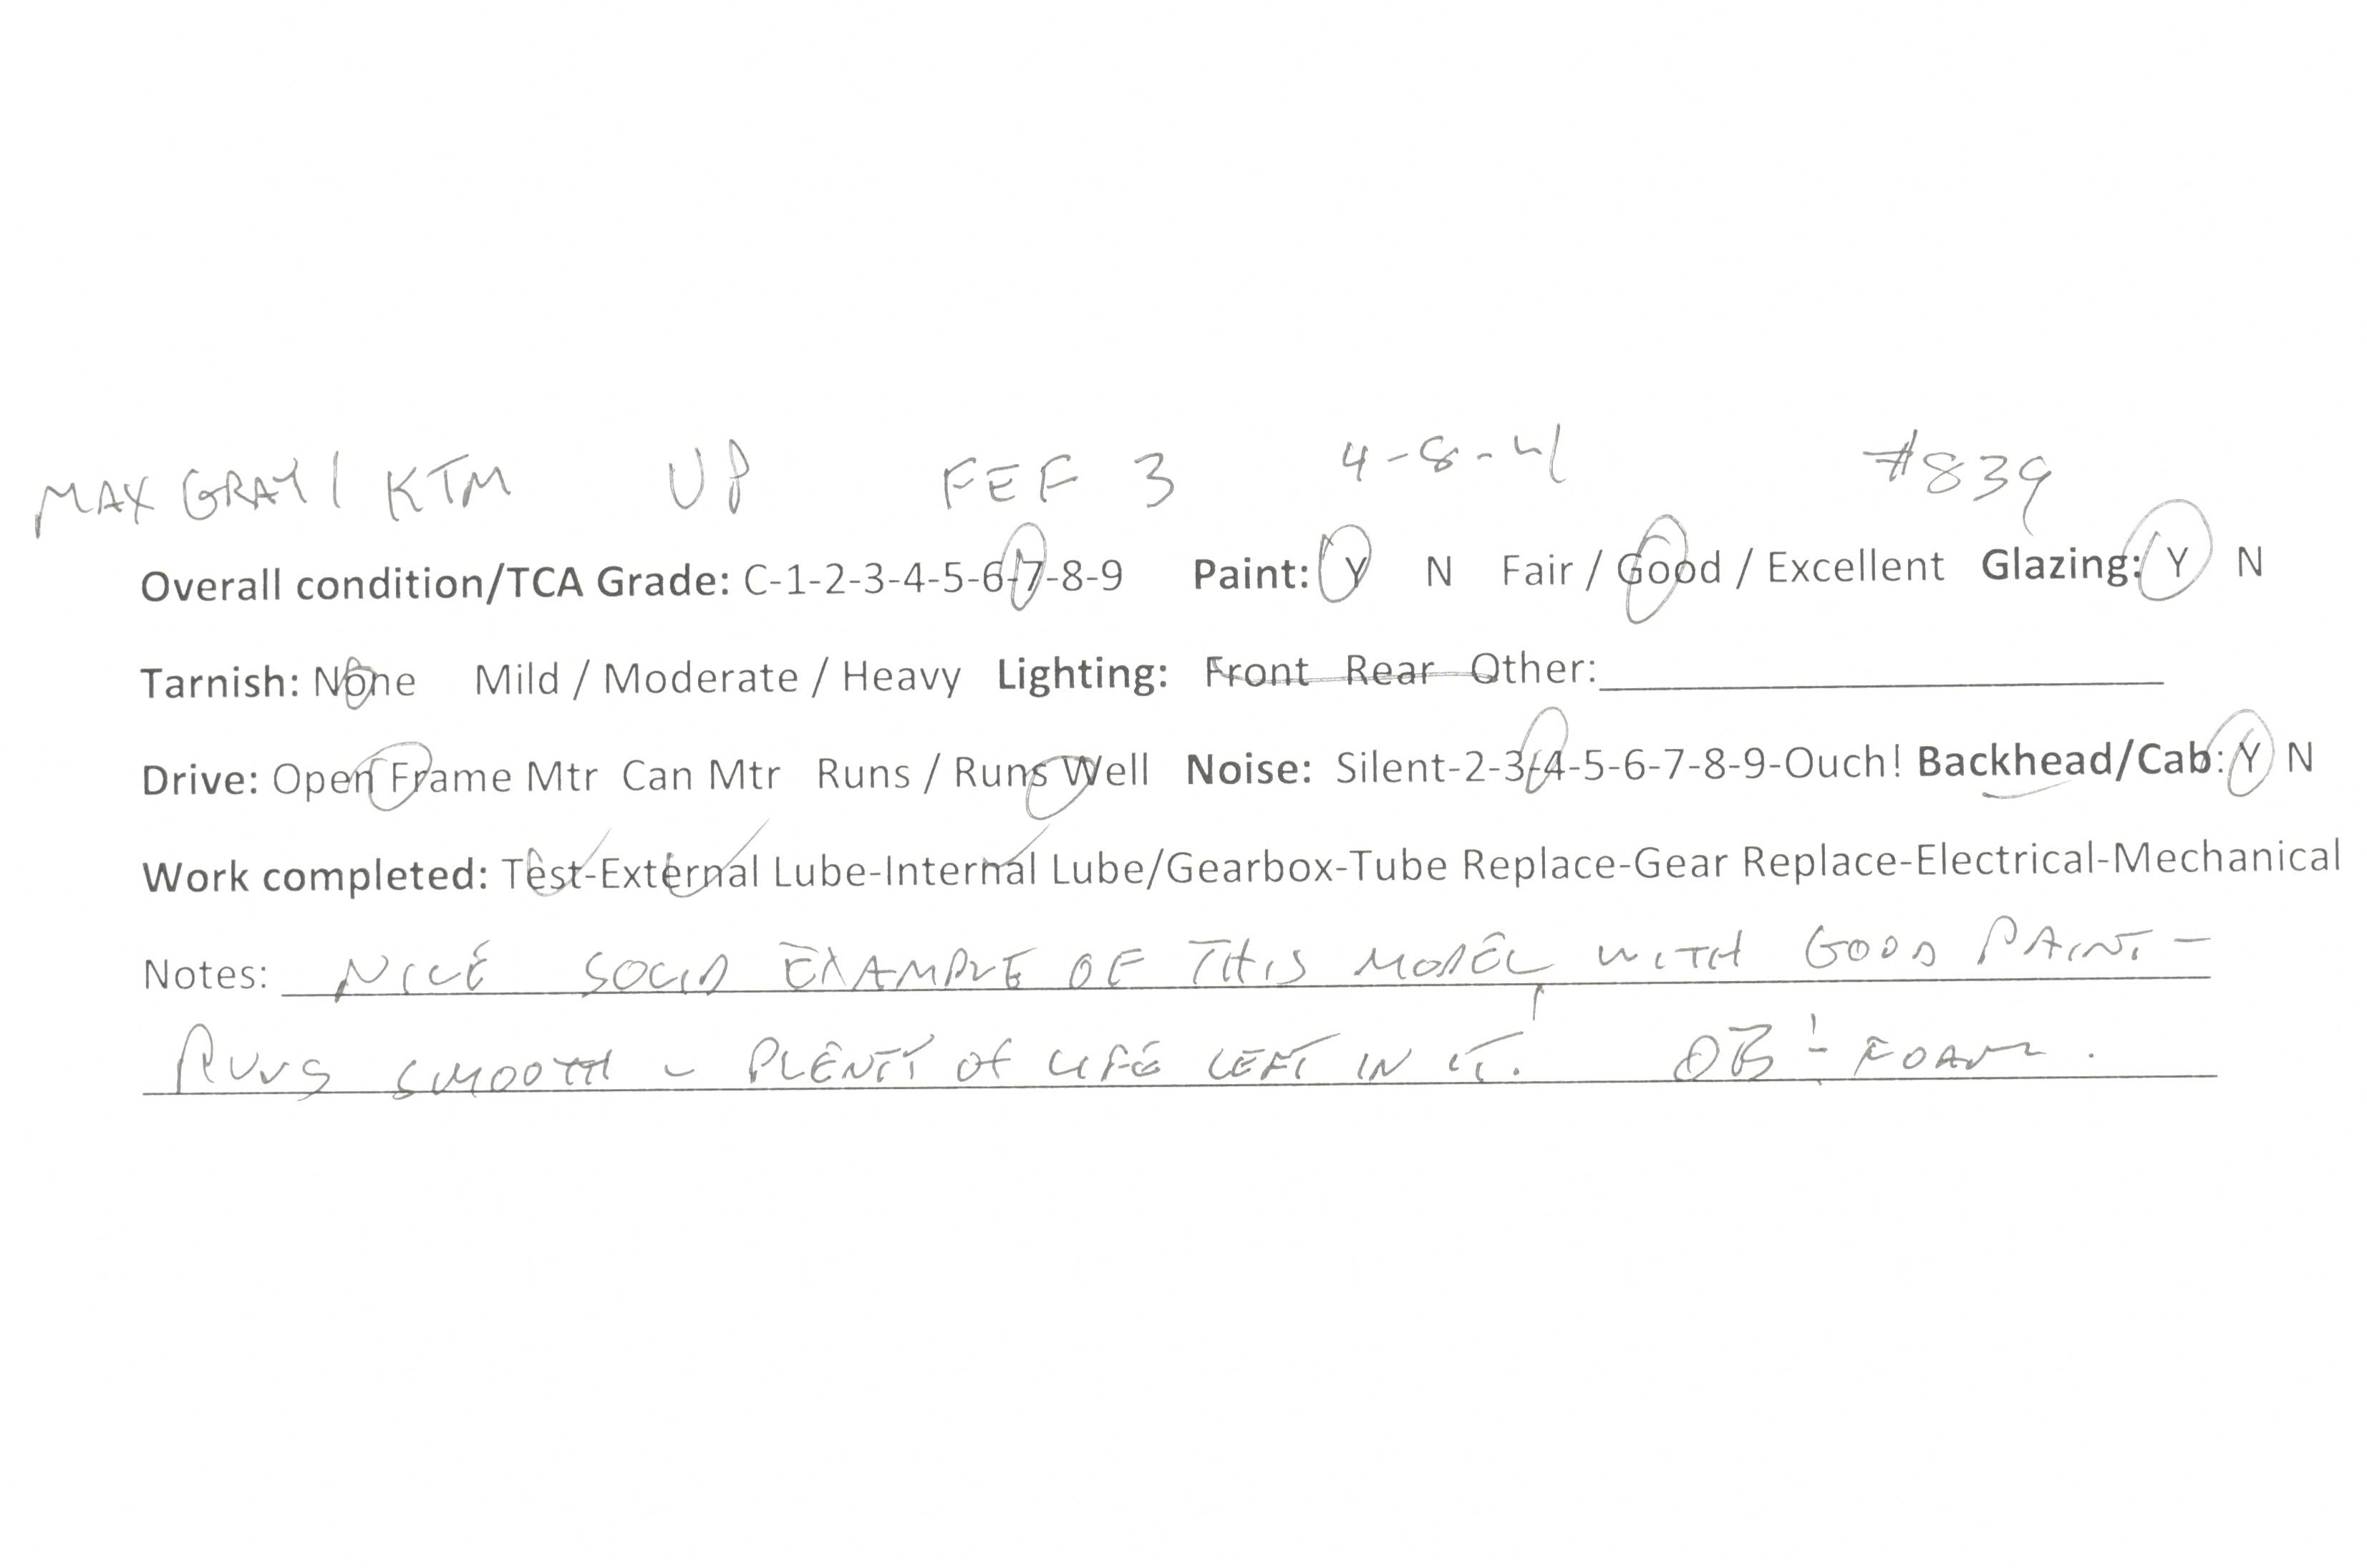 MAX GRAY / KTM UP FEF 3 4-8-4 #839
Overall condition/TCA Grade: C-1-2-3-4-5-6-7-8-9 Paint: Y N Fair / Good / Excellent Glazing: Y N
Tarnish: None Mild / Moderate / Heavy Lighting: Front Rear Other:
Drive: Open Frame Mtr Can Mtr Runs / Runs Well Noise: Silent-2-3-4-5-6-7-8-9-Ouch! Backhead/Cab: Y N
Work completed: Test-External Lube-Internal Lube/Gearbox-Tube Replace-Gear Replace-Electrical-Mechanical
Notes: NICE SOLID EXAMPLE OF THIS MODEL WITH GOOD PAINT -
RUNS SMOOTH - PLENTY OF LIFE LEFT IN IT. OB - FOAM.